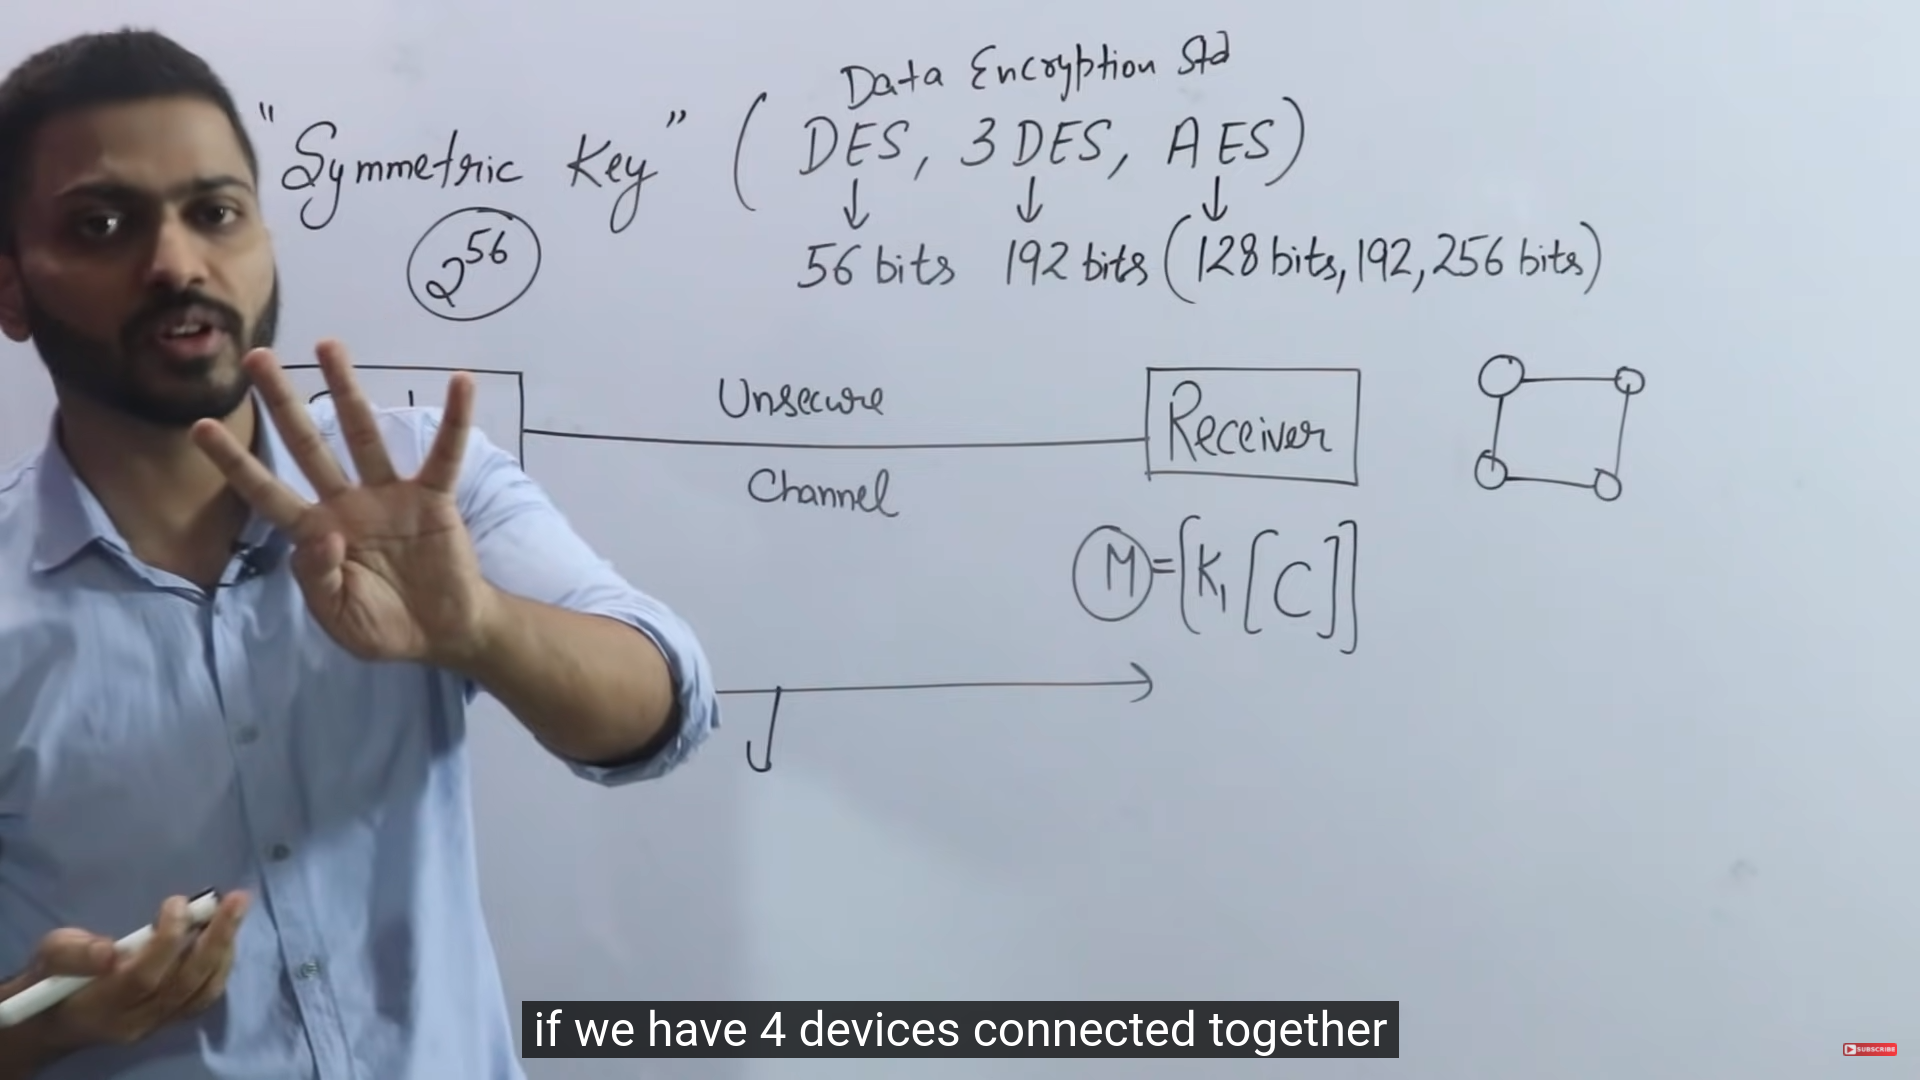 Data Encryption Std
"Symmetric Key" ( DES, 3 DES, AES)
2^56
56 bits 192 bits (128 bits, 192, 256 bits)
Unsecure
Channel
Receiver
M = [K₁ [C]]
if we have 4 devices connected together
SUBSCRIBE